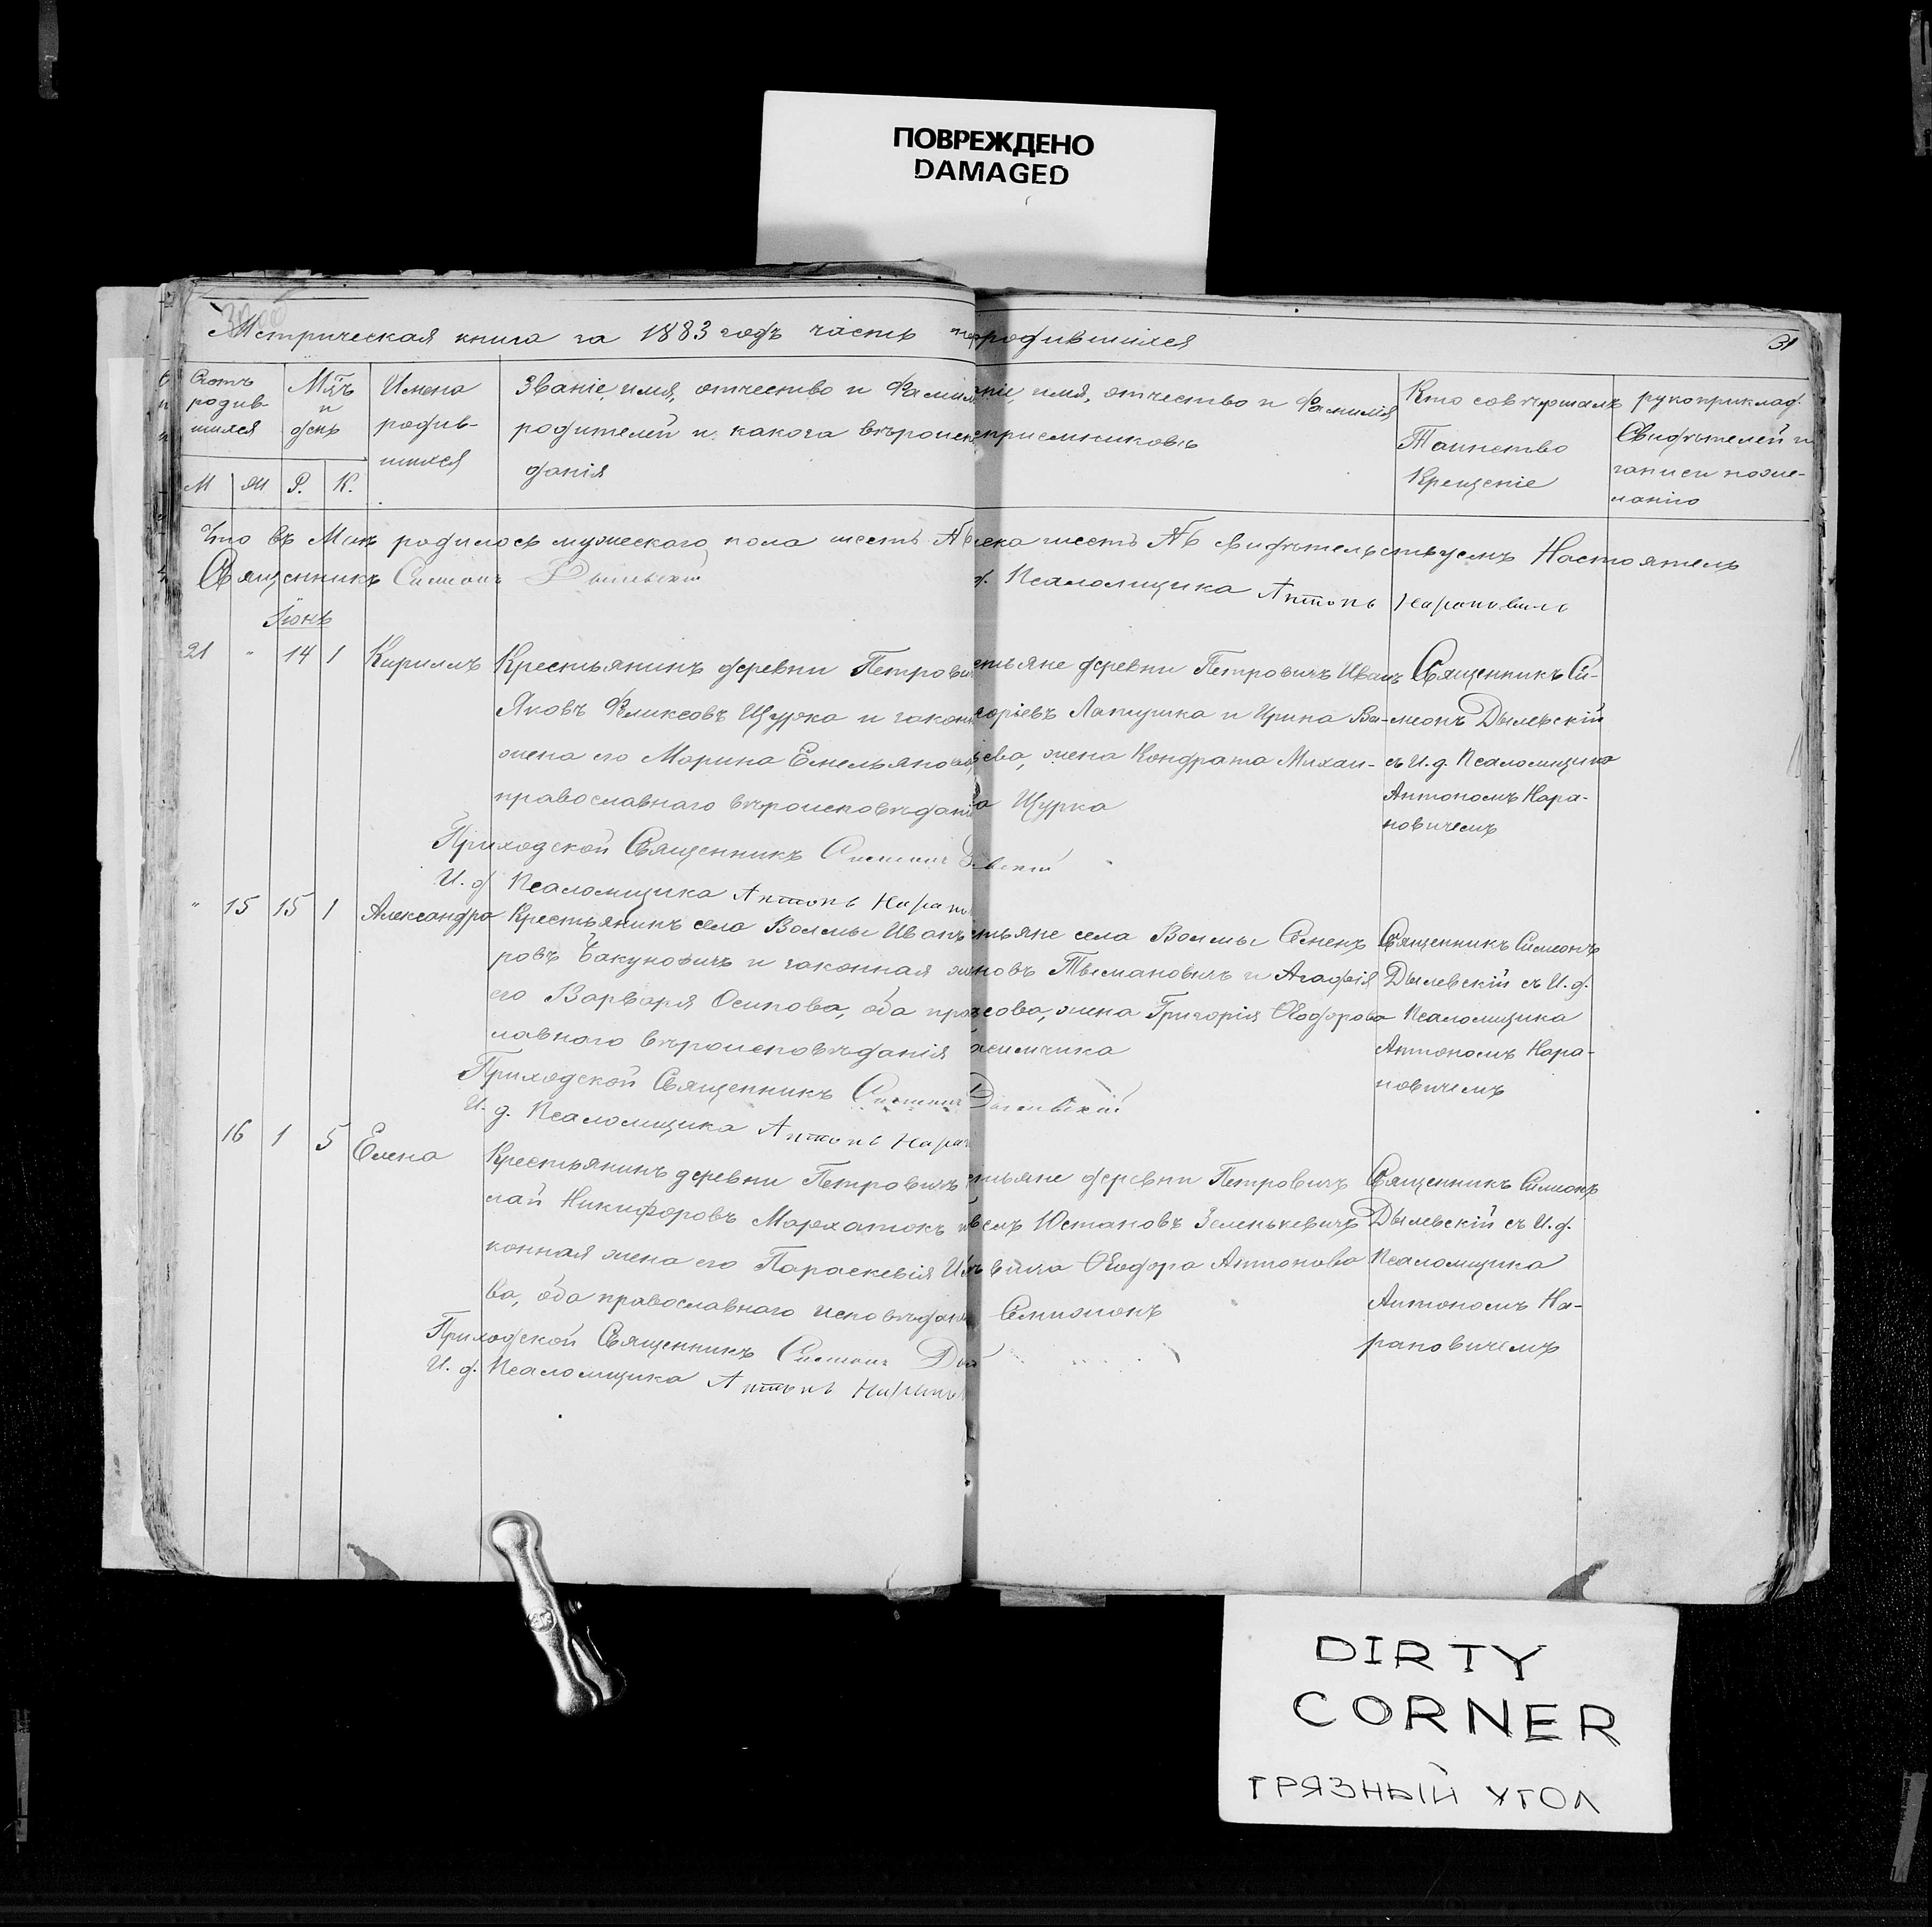 ПОВРЕЖДЕНО
DAMAGED
Метрическая книга за 1883 годъ часть
родившихся
31
Счетъ родив-шихся
М Ж
Мц̃ъ и день
Р. К.
Имена родив-шихся
Званіе, имя, отчество и Фамил
родителей и какога вѣроиспо
данія
имя, отчество и Фамилія
воспріемниковъ
Кто совершалъ
Таинство
Крещеніе
рукоприклад.
Свидѣтелей и
записи поже-
ланію
Что въ Маѣ родилось мужескаго пола шесть А
шесть Аъ свидѣтельствуемъ Настоятель
Священникъ Симеонъ Дылевскій
Псаломщика Антонъ Нарановичъ
Іюнь
21 " 14 1 Кирилъ
Крестьянинъ деревни Петрови
Яковъ Феликсовъ Щурка и закон
жена его Марина Емельянова,
православнаго вѣроисповѣдані
стьяне деревни Петровичъ Иванъ
горіевъ Лапушка и Ирина Ва-
ева, жена Кондрата Михаи-
а Щурка
Священникъ Си-
меонъ Дылевскій
съ И. д. Псаломщика
Антономъ Нара-
новичемъ
Приходской Священникъ Симеонъ Д вскій
И. д. Псаломщика Антонъ Наран
" 15 15 1 Александра
Крестьянинъ села Волмы Иванъ
ровъ Бакуновичъ и законная ж
его Варвара Осипова, оба пра
лавнаго вѣроисповѣданія
стьяне села Волмы Семенъ
новъ Тымановичъ и Агафія
сова, жена Григорія Ѳеодорова
Священникъ Симеонъ
Дылевскій съ И. д.
Псаломщика
Антономъ Нара-
новичемъ
Приходской Священникъ Симеонъ Дылевскій
И. д. Псаломщика Антонъ Наран
16 1 5 Елена
Крестьянинъ деревни Петровичъ
лай Никифоровъ Мархатокъ и
конная жена его Параскевія И
ва, оба православнаго исповѣдані
стьяне деревни Петровичъ
Юстиновъ Зеленькевичъ
Ѳеодора Антонова
Священникъ Симеонъ
Дылевскій съ И. д.
Псаломщика
Антономъ На-
рановичемъ
Приходской Священникъ Симеонъ Ды
И. д. Псаломщика Антонъ Наран
DIRTY
CORNER
ГРЯЗНЫЙ УГОЛ